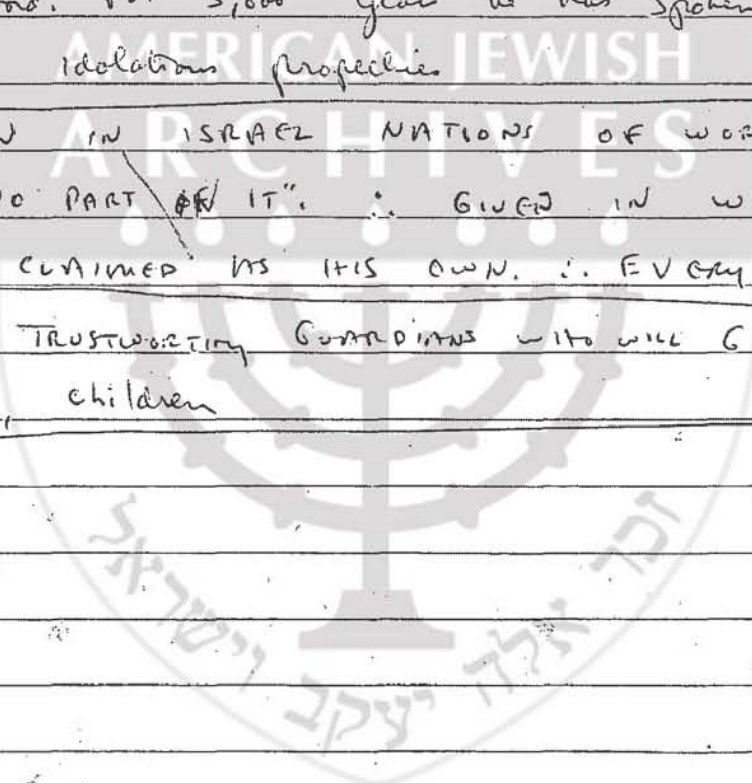 3,000 years he has spoken
AMERICAN JEWISH
idolatrous propechies
ARCHIVES
IN ISRAEL NATIONS OF WOR
PART OF IT". ∴ GIVEN IN W
CLAIMED AS HIS OWN. ∴ EVERY
TRUSTWORTHY GUARDIANS WHO WILL G
children
זכר אלה יעקב וישראל